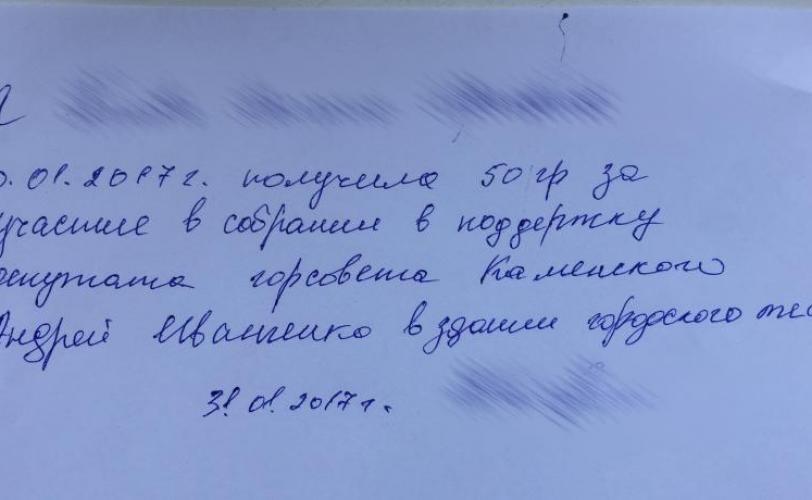 Я
0.01.2017г. получила 50 гр за
участие в собрании в поддержку
депутата горсовета Каменского
Андрей Иваненко в здании городского те
31.01.2017г.